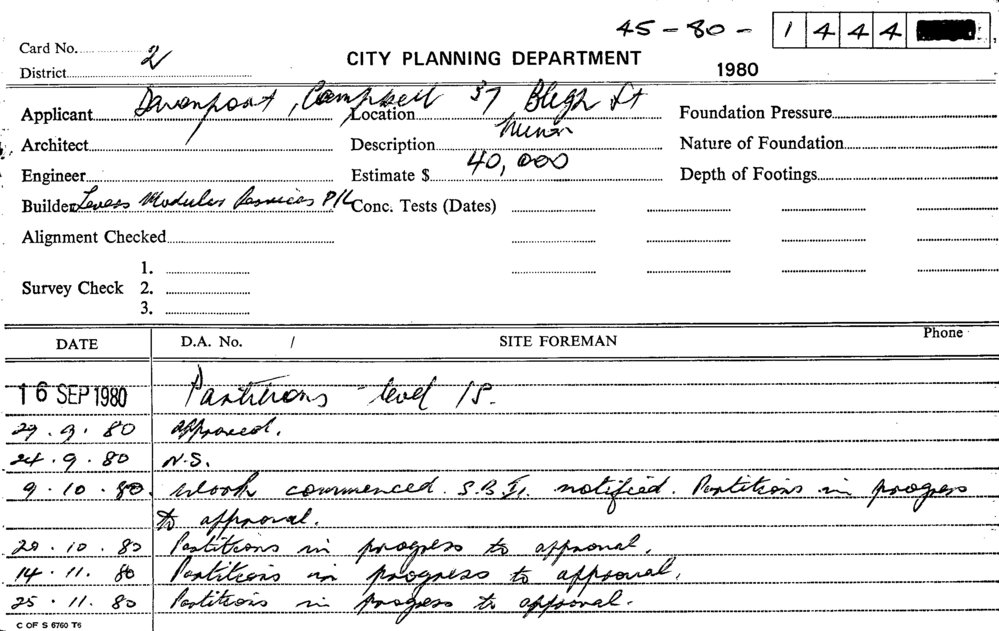 45 - 80 - 1 4 4 4
Card No. 2
CITY PLANNING DEPARTMENT
1980
District
Applicant Davenport, Campbell Location 37 Bligh St Foundation Pressure
Architect Description Minor Nature of Foundation
Engineer Estimate $ 40,000 Depth of Footings
Builder Modular Services P/L Conc. Tests (Dates)
Alignment Checked
1.
Survey Check 2.
3.
DATE D.A. No. / SITE FOREMAN Phone
16 SEP 1980 Partitions - level 15.
approved.
24.9.80 N.S.
9.10.80 Work commenced. S.B.I. notified. Partitions in progress
to approval.
20.10.80 Partitions in progress to approval.
14.11.80 Partitions in progress to approval.
25.11.80 Partitions in progress to approval.
C OF S 6760 T6